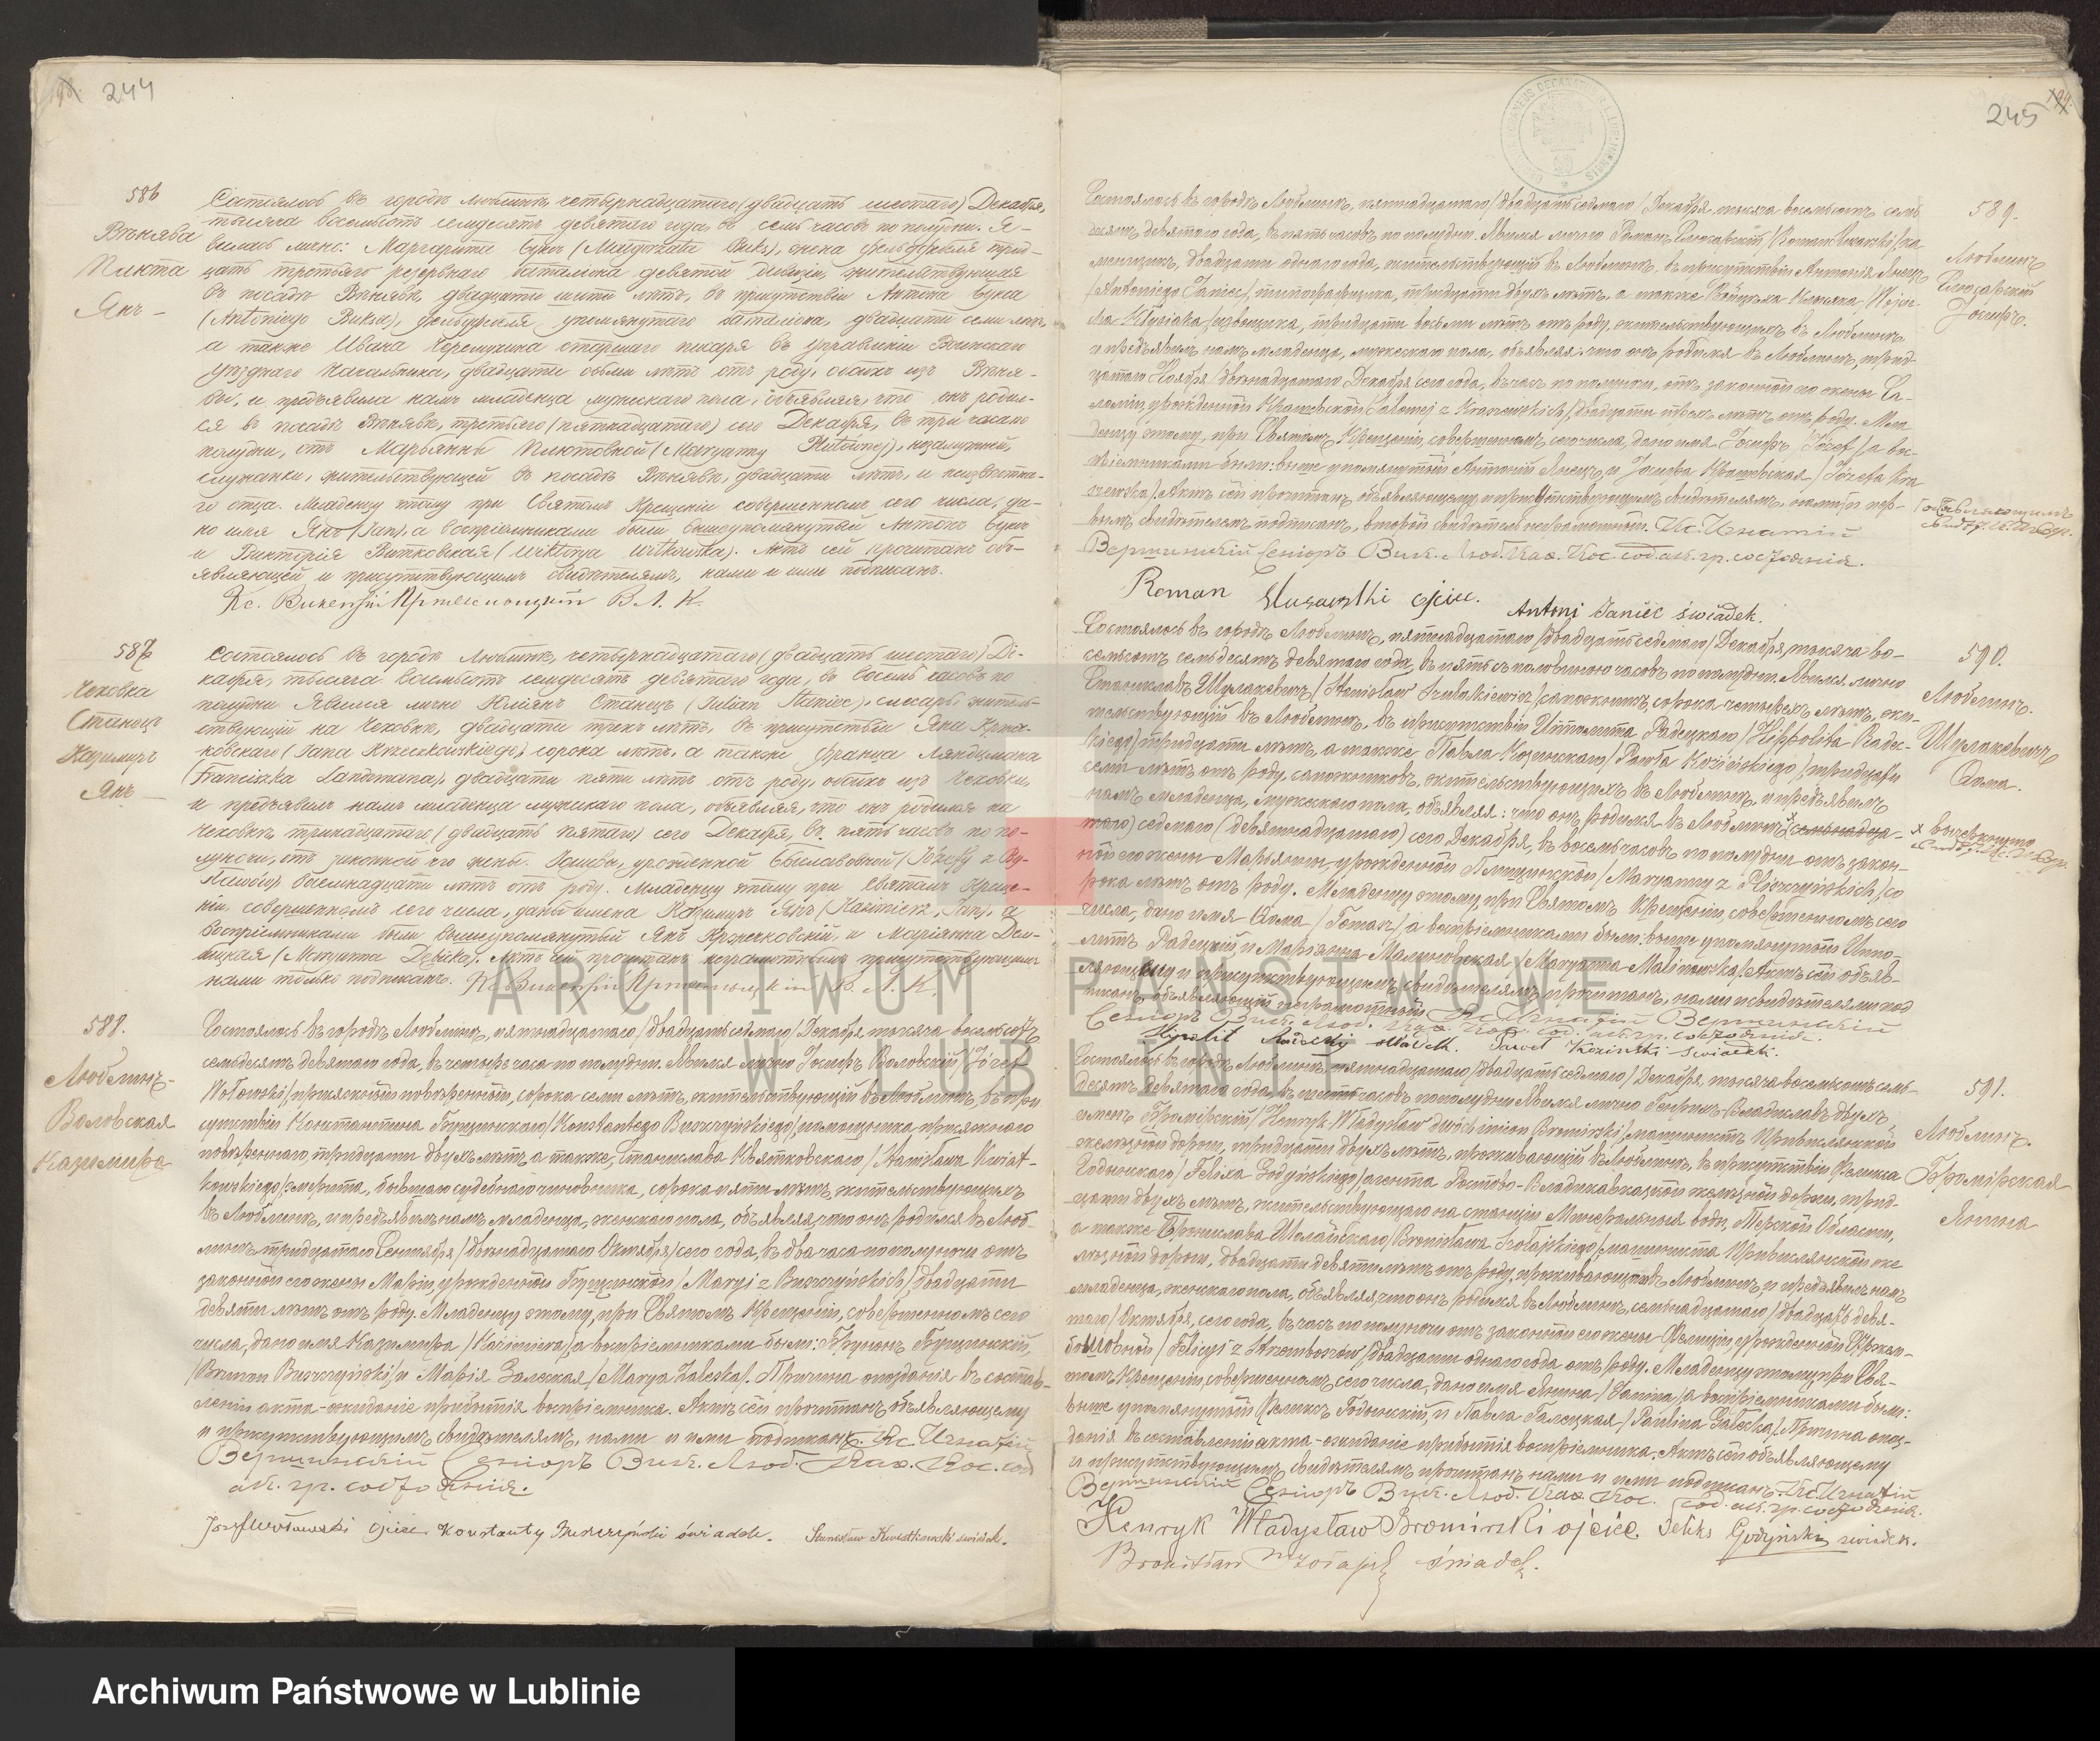 244
586
Вѣнява
Плюта
Янъ
Состоялось въ городѣ Люблинѣ, четырнадцатаго (двадцать шестаго) Декабря,
тысяча восемьсотъ семдесятъ девятаго года, въ семь часовъ по полудни. Я-
вилась лично: Маргарита Букъ (Małgorzata Buks), жена фельдфебеля трид-
цать третьяго резервнаго баталіона девятой дивизіи, жительствующая
въ посадѣ Вѣнявѣ, двадцати шести лѣтъ, въ присутствіи Антона Букса
(Antoniego Buksa), фельдфебеля упомянутаго баталіона, двадцати семи лѣтъ,
а также Ивана Черемухина старшаго писаря въ управленіи Воинскаго
уѣзднаго Начальника, двадцати осьми лѣтъ отъ роду, обоихъ изъ Веня-
вы, и предъявила намъ младенца мужескаго пола, объявляя, что онъ родил-
ся въ посадѣ Вѣнявѣ, третьяго (пятнадцатаго) сего Декабря, въ три часа по
полудни, отъ Марьянны Плютовной (Maryanny Plutównej), незамужней,
служанки, жительствующей въ посадѣ Вѣнявѣ, двадцати лѣтъ, и неизвѣстна-
го отца. Младенцу этому при Святомъ Крещеніи совершенномъ сего числа, да-
но имя Янъ (Jan), а воспріемниками были вышеупомянутый Антонъ Букъ
и Викторія Витковская (Wiktorya Witkowska). Актъ сей прочитанъ объ-
являющей и присутствующимъ свидѣтелямъ, нами и ими подписанъ.
Кс. Викентій В. Л. К.
587
Чеховка
Станецъ
Казимиръ
Янъ
Состоялось въ городѣ Люблинѣ, четырнадцатаго (двадцать шестаго) Де-
кабря, тысяча восемьсотъ семдесятъ девятаго года, въ восемь часовъ по
полудни. Явился лично Юліянъ Станецъ (Julian Staniec), слесарь, житель-
ствующій на Чеховкѣ, двадцати трехъ лѣтъ, въ присутствіи Яна Кржеч-
ковскаго (Jana Krzeczkowskiego), сорока лѣтъ, а также Франца Ляндцмана
(Franciszka Landzmana), двадцати пяти лѣтъ отъ роду, обоихъ изъ Чеховки,
и предъявилъ намъ младенца мужескаго пола, объявляя, что онъ родился на
Чеховкѣ тринадцатаго (двадцать пятаго) сего Декабря, въ пять часовъ по по-
луночи, отъ законной его жены Іозефы, урожденной (Józefy z By-
), восемнадцати лѣтъ отъ роду. Младенцу этому при Святомъ Креще-
ніи, совершенномъ сего числа, даны имена Казимиръ Янъ (Kazimierz, Jan), а
воспріемниками были вышеупомянутый Янъ Кржечковскій, и Маріянна Дем-
бицкая (Maryanna Dębicka). Актъ сей прочитанъ неграмотнымъ присутствующимъ
нами только подписанъ. Кс. Викентій В. Л. К.
588.
Люблинъ
Воловская
Казимира
Состоялось въ городѣ Люблинѣ, пятнадцатаго /двадцать седмаго/ Декабря тысяча восемьсотъ
семьдесятъ девятаго года, въ четыре часа по полудни. Явился лично Іосифъ Воловскій /Józef
Wołowski/, присяжный повѣренный, сорока семи лѣтъ, жительствующій въ Люблинѣ, въ при
сутствіи Константина Бущинскаго /Konstantego Buszczyńskiego/, помощника присяжнаго
повѣреннаго, тридцати двухъ лѣтъ, а также, Станислава Квятковскаго /Stanisława Kwiat-
kowskiego/, эмерита, бывшаго судебнаго чиновника, сорока пяти лѣтъ, жительствующихъ
въ Люблинѣ, и предъявилъ намъ младенца, женскаго пола, объявляя, что онъ родился въ Люб-
линѣ тридцатаго Сентября /двѣнадцатаго Октября/ сего года, въ два часа по полуночи отъ
законной его жены Маріи, урожденной Бущинской /Maryi z Buszczyńskich/, двадцати
девяти лѣтъ отъ роду. Младенцу этому, при Святомъ Крещеніи, совершенномъ сего
числа, дано имя Казимира /Kazimiera/ а воспріемниками были: Брунонъ Бущинскій,
/Brunon Buszczyński/ и Марія Залеская /Marya Zaleska/. Причина опозданія въ состав-
леніи акта – ожиданіе прибытія воспріемника. Актъ сей прочитанъ объявляющему
и присутствующимъ свидѣтелямъ, нами и ими подписанъ. Кс. Игнатій
Вершинскій Сеніоръ Вик. Люб. Каѳ. Кос. сод.
ак. гр. состоянія.
Józef Wołowski ojciec Konstanty Buszczyński świadek. Stanisław Kwiatkowski świadek.
245
589.
Люблинъ
Слюсарскій
Іосифъ.
Состоялось въ городѣ Люблинѣ, пятнадцатаго /двадцать седмаго/ Декабря, тысяча восемьсотъ семь
десятъ девятаго года, въ пять часовъ по полудни. Явился лично Романъ Слюсарскій /Roman Slusarski/ ка
менщикъ, двадцати одного года, жительствующій въ Люблинѣ, въ присутствіи Антонія Янецъ
/Antoniego Janiec/, типографщика, тридцати двухъ лѣтъ, а также Войцѣха /Wojcie-
cha /извощика, тридцати восьми лѣтъ отъ роду, жительствующихъ въ Люблинѣ,
и предъявилъ намъ младенца, мужескаго пола, объявляя: что онъ родился въ Люблинѣ, трид-
цатаго Ноября /двѣнадцатаго Декабря/ сего года, въ часъ по полуночи, отъ законной его жены Са-
ломіи, урожденной Крашевской /Salomei z Kraszewskich/ двадцати трехъ лѣтъ отъ роду. Мла
денцу этому, при Святомъ Крещеніи, совершенномъ сего числа, дано имя Іосифъ /Józef/ а вос-
пріемниками были: выше упомянутый Антоній Янецъ, и Іосифа Крашевская /Józefa Kra
szewska/. Актъ сей прочитанъ, объявляющему и присутствующимъ свидѣтелямъ, нами, и пер-
вымъ свидѣтелемъ подписанъ, второй свидѣтель неграмотный. Кс. Игнатій
Вершинскій Сеніоръ Вик. Люб. Каѳ. Кос. сод. ак. гр. состоянія.
Roman Slusarski ojciec. Antoni Janiec świadek.
590.
Люблинъ.
Шулакевичъ
Ѳома.
Состоялось въ городѣ Люблинѣ, пятнадцатаго /двадцать седмаго/ Декабря, тысяча во-
семьсотъ семьдесятъ девятаго года, въ пять съ половиною часовъ по полудни. Явился лично
Станиславъ Шулакевичъ /Stanisław Szulakiewicz/ сапожникъ, сорока четырехъ лѣтъ, жи-
тельствующій въ Люблинѣ, въ присутствіи Ипполита Радецкаго /Hippolita Radec-
kiego/, тридцати лѣтъ, а также Павла Козинскаго /Pawła Kozińskiego/, тридцати
семи лѣтъ отъ роду, сапожниковъ, жительствующихъ въ Люблинѣ, и предъявилъ
намъ младенца, мужескаго пола, объявляя: что онъ родился въ Люблинѣ х семьнадца-
таго) седмаго (девятнадцатаго) сего Декабря, въ восемь часовъ по полудни отъ закон-
ной его жены Марьянны, урожденной /Maryanny z /со
рока лѣтъ отъ роду. Младенцу этому, при Святомъ Крещеніи, совершенномъ сего
числа, дано имя Ѳома /Tomasz/ а воспріемниками были: выше упомянутый Иппо-
литъ Радецкій и Маріянна Малиновская /Maryanna Malinowska/. Актъ сей объяв-
ляющему и присутствующимъ свидѣтелямъ прочитанъ, нами и свидѣтелями под
писанъ, объявляющій неграмотный. Кс. Игнатій Вершинскій
Сеніоръ Вик. Люб. Каѳ. Кос. сод. ак. гр. состоянія.
Hipolit Radecki świadek. Paweł Koziński świadek.
х вычеркнуто
591.
Люблинъ.
Бромірская
Янина
Состоялось въ городѣ Люблинѣ, пятнадцатаго /двадцать седмаго/ Декабря, тысяча восемьсотъ семь-
десятъ девятаго года, въ шесть часовъ по полудни. Явился лично Генрихъ-Владиславъ двухъ
именъ Бромірскій /Henryk Władysław dwóch imion Bromirski/, машинистъ Привислянской
желѣзной дороги, тридцати двухъ лѣтъ, проживающій въ Люблинѣ, въ присутствіи Феликса
Годынскаго /Felixa Godyńskiego/ агента Ростово-Владикавказской желѣзной дороги, трид-
цати двухъ лѣтъ, жительствующаго на станціи Минеральныя воды, Терской Области,
а также Бронислава Шолайскаго /Bronisława Szołajskiego/, машиниста Привислянской же
лѣзной дороги, двадцати девяти лѣтъ отъ роду, проживающаго въ Люблинѣ, и предъявилъ намъ
младенца, женскаго пола, объявляя, что онъ родился въ Люблинѣ, семьнадцатаго /двадцать девя-
таго/ Октября, сего года, въ часъ по полуночи отъ законной его жены Фелиціи, урожденной Стржем-
бошовной /Felicyi z Strzemboszów/ двадцати одного года отъ роду. Младенцу этому при Свя-
томъ Крещеніи, совершенномъ сего числа, дано имя Янина /Janina/ а воспріемниками были:
выше упомянутый Феликсъ Годынскій, и Павла Галецкая /Paulina Gałecka/. Причина опоз-
данія въ составленіи акта – ожиданіе прибытія воспріемника. Актъ сей объявляющему
и присутствующимъ свидѣтелямъ прочитанъ, нами и ими подписанъ. Кс. Игнатій
Вершинскій Сеніоръ Вик. Люб. Каѳ. Кос. сод. ак. гр. состоянія.
Henryk Władysław Bromirski ojciec. Feliks Godyński świadek.
Bronisław Szołajski świadek.
ARCHIWUM PAŃSTWOWE
W LUBLINIE
Archiwum Państwowe w Lublinie